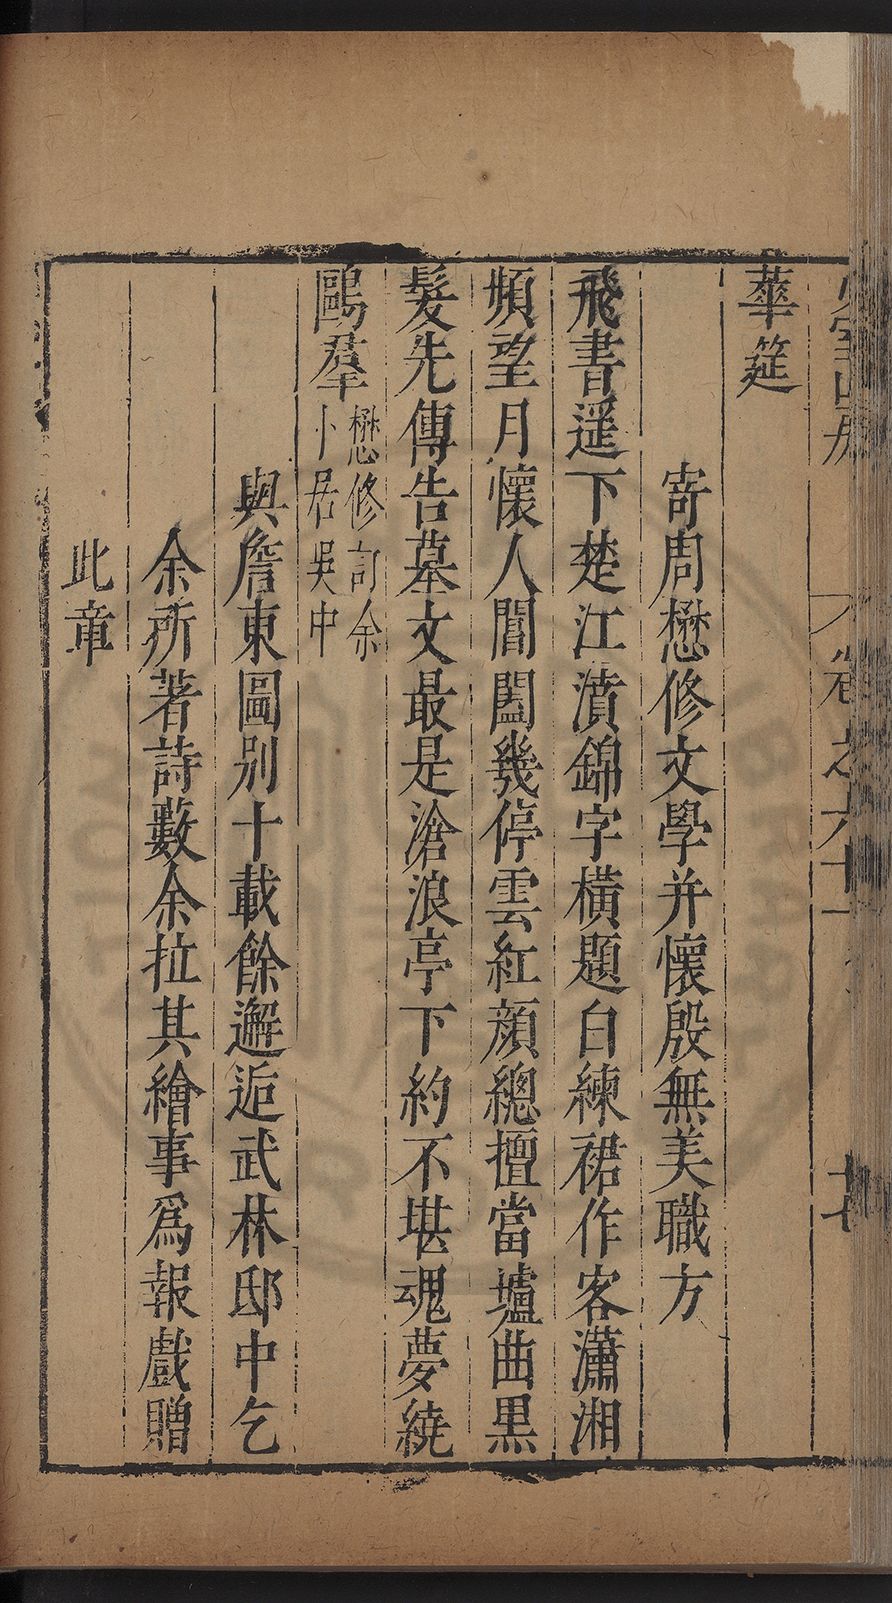 少室山房
卷之六十一
十七
華筵
寄周懋修文學并懷殷無美職方
飛書遥下楚江濆錦字橫題白練裙作客瀟湘
頻望月懷人閶闔幾停雲紅顏總擅當壚曲黒
髮先傳告墓文最是滄浪亭下約不堪魂夢繞
鷗羣
懋修訂余
卜居吳中
與詹東圖别十載餘邂逅武林邸中乞
余所著詩數余拉其繪事爲報戲贈
此章